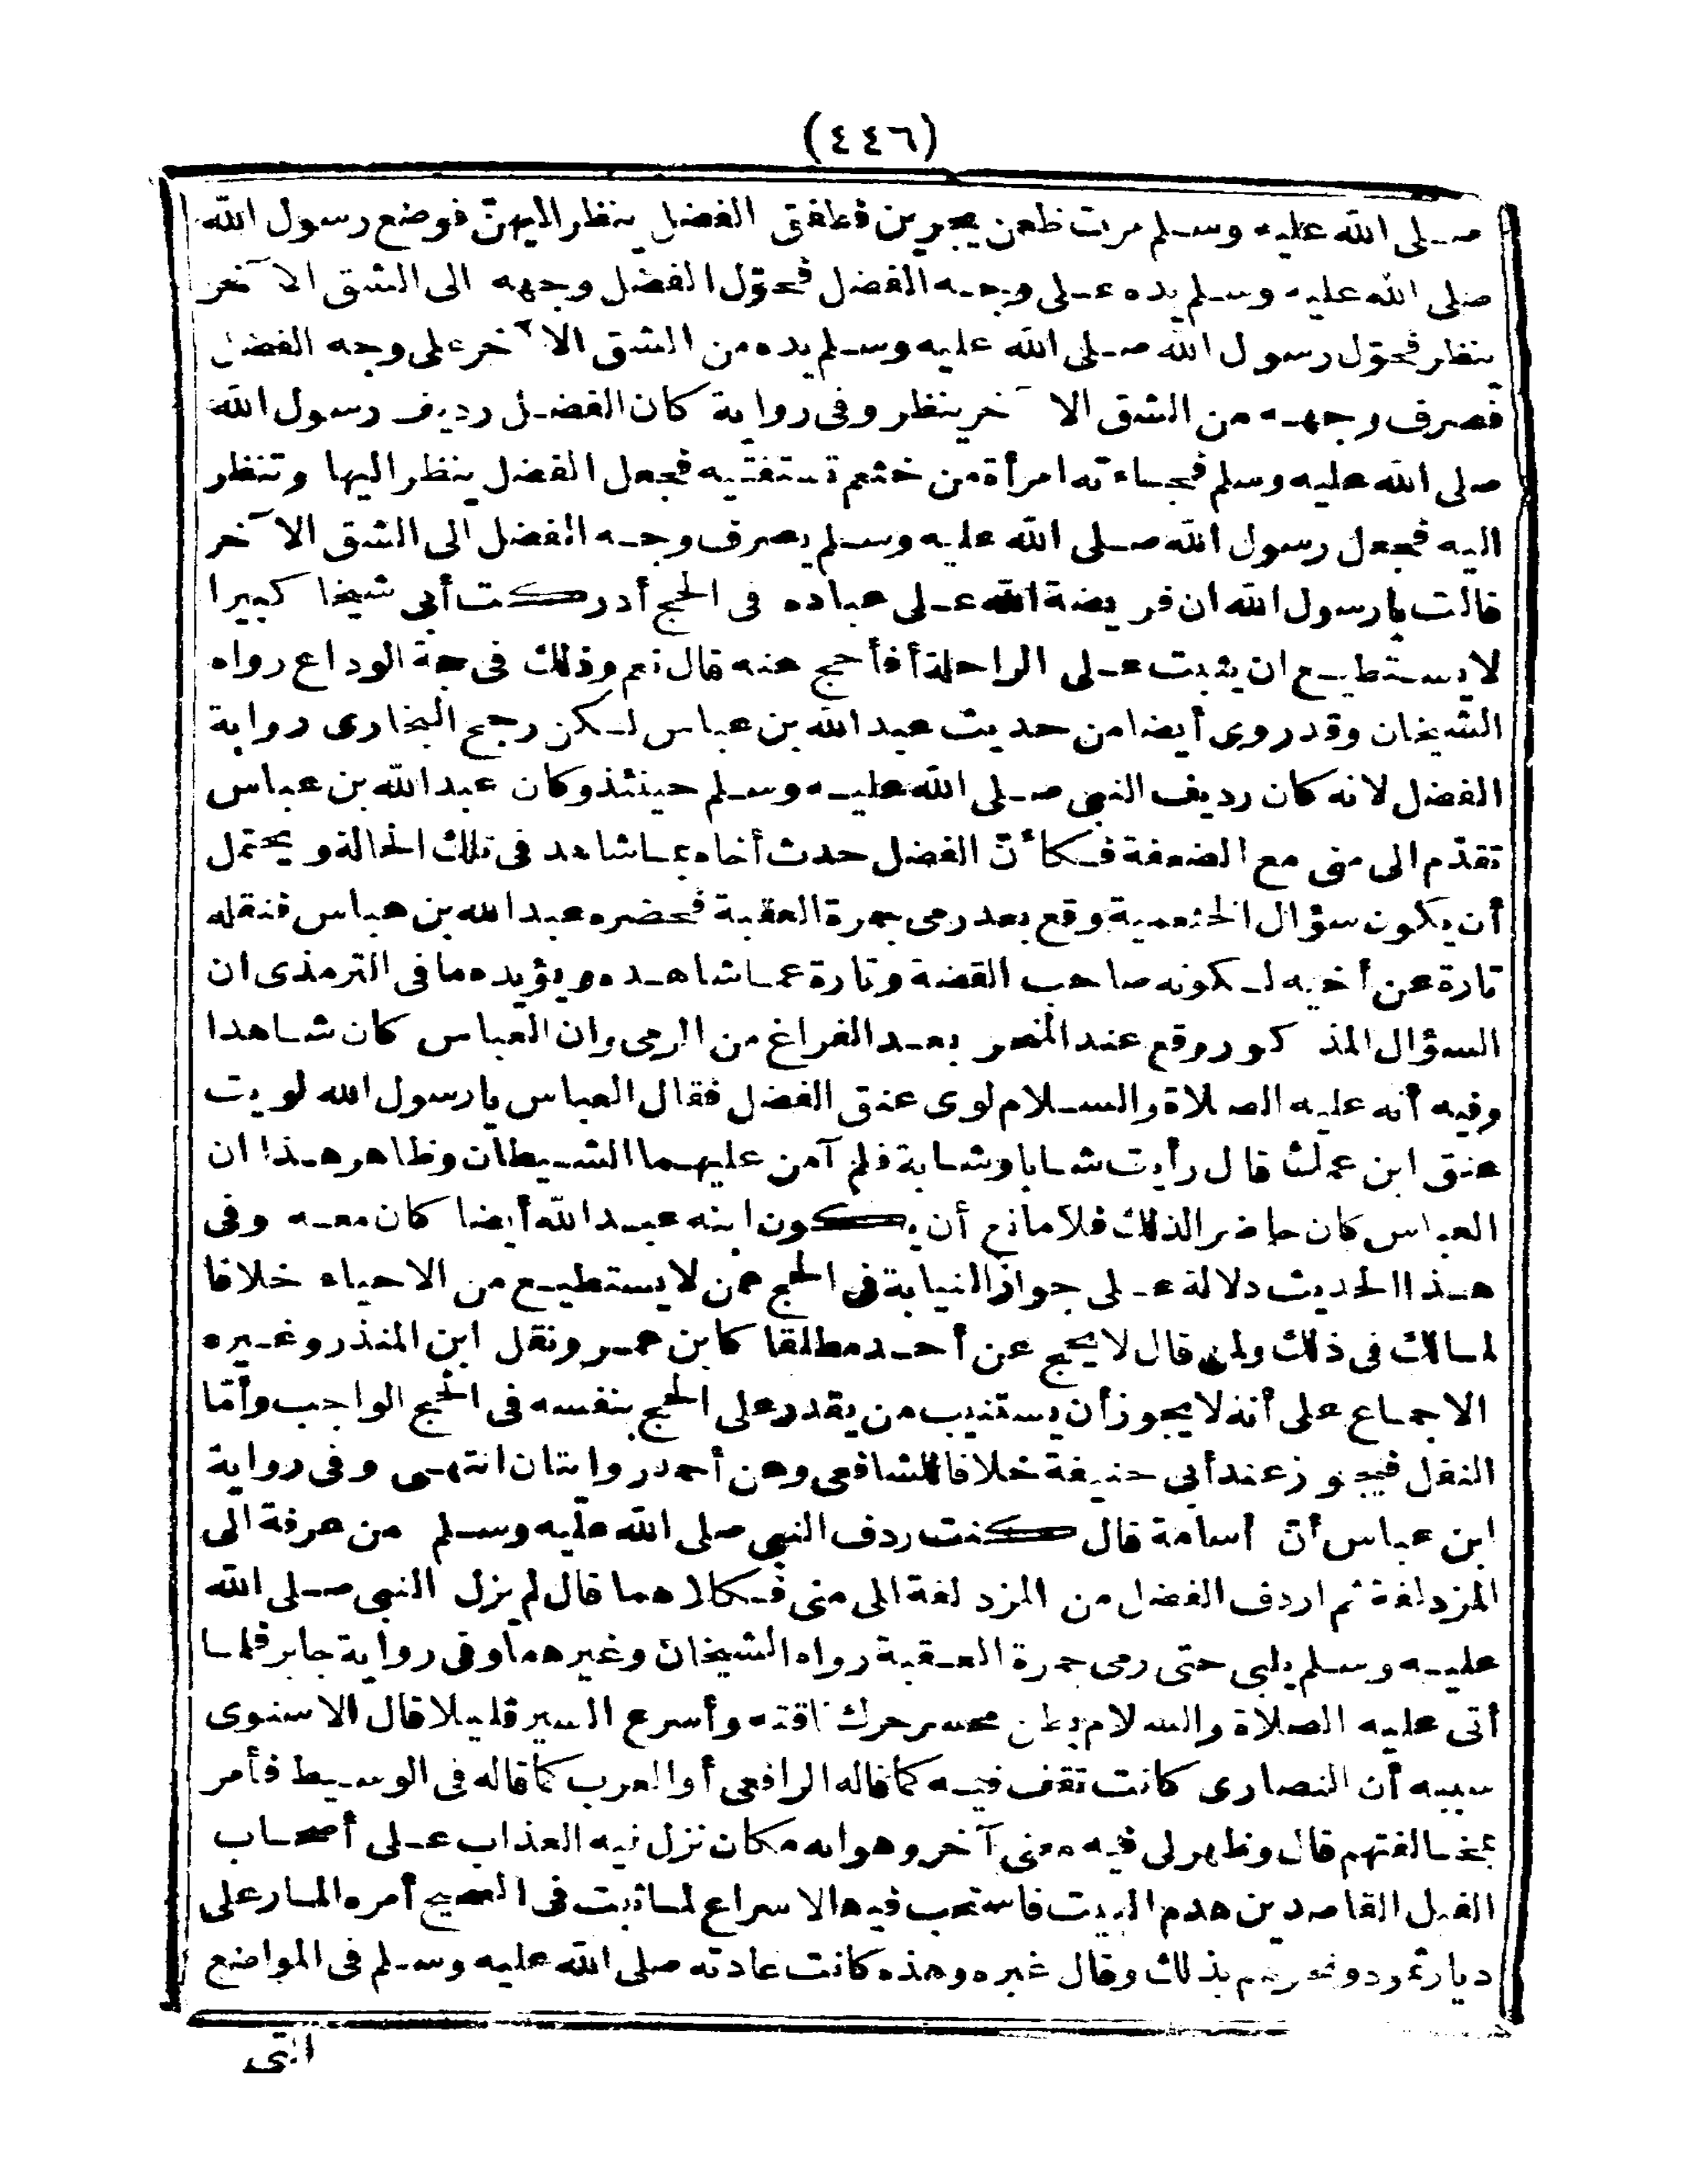 (٤٤٦)
صلى الله عليه وسلم مرت ظعن يجرين فطفق الفضل ينظر اليهنّ فوضع رسول الله
صلى الله عليه وسلم يده على وجه الفضل فحوّل الفضل وجهه الى الشق الآخر
ينظر فحوّل رسول الله صلى الله عليه وسلم يده من الشق الآخر على وجه الفضل
فصرف وجهه من الشق الآخر ينظر وفى رواية كان الفضل رديف رسول الله
صلى الله عليه وسلم فجاءته امرأة من خثعم تستفتيه فجعل الفضل ينظر اليها وتنظر
اليه فجعل رسول الله صلى الله عليه وسلم يصرف وجه الفضل الى الشق الآخر
قالت يارسول الله ان فريضة الله على عباده فى الحج أدركت أبى شيخا كبيرا
لايستطيع ان يثبت على الراحلة أفأحج عنه قال نعم وذلك فى حجة الوداع رواه
الشيخان وقد روى أيضا من حديث عبد الله بن عباس لكن رجح البخارى رواية
الفضل لانه كان رديف النبى صلى الله عليه وسلم حينئذ وكان عبد الله بن عباس
تقدّم الى منى مع الضعفة فكأنّ الفضل حدث أخاه بما شاهد فى تلك الحالة ويحتمل
أن يكون سؤال الخثعمية وقع بعد رمى جمرة العقبة فحضره عبد الله بن عباس فنقله
تارة عن أخيه لكونه صاحب القضة وتارة عما شاهده ويؤيده ما فى الترمذى ان
السؤال المذكور وقع عند المنحر بعد الفراغ من الرمى وان العباس كان شاهدا
وفيه أنه عليه الصلاة والسلام لوى عنق الفضل فقال العباس يارسول الله لويت
عنق ابن عمك قال رأيت شابا وشابة فلم آمن عليهما الشيطان وظاهر هذا ان
العباس كان حاضرا لذلك فلا مانع أن يكون ابنه عبد الله أيضا كان معه وفى
هذا الحديث دلالة على جواز النيابة فى الحج عمن لا يستطيع من الاحياء خلافا
لمالك فى ذلك ولمن قال لا يحج عن أحد مطلقا كابن عمر ونقل ابن المنذر وغيره
الاجماع على أنه لا يجوز أن يستنيب من يقدر على الحج بنفسه فى الحج الواجب وأمّا
النفل فيجوز عند أبى حنيفة خلافا للشافعى وعن أحمد روايتان انتهى وفى رواية
ابن عباس أنّ أسامة قال كنت ردف النبى صلى الله عليه وسلم من عرفة الى
المزدلفة ثم اردف الفضل من المزدلفة الى منى فكلاهما قال لم يزل النبى صلى الله
عليه وسلم يلبى حتى رمى جمرة العقبة رواه الشيخان وغيرهما وفى رواية جابر فلما
أتى عليه الصلاة والسلام بطن محسر حرك ناقته وأسرع السير قليلا قال الاسنوى
سببه أن النصارى كانت تقف فيه كما قاله الرافعى أو العرب كما قاله فى الوسيط فأمر
بمخالفتهم قال وظهر لى فيه معنى آخر وهو انه مكان نزل فيه العذاب على أصحاب
الفيل القاصدين هدم البيت فاستحب فيه الاسراع لما ثبت فى الصحيح أمره المار على
ديار ثمود ونحوهم بذلك وقال غيره وهذه كانت عادته صلى الله عليه وسلم فى المواضع
التى